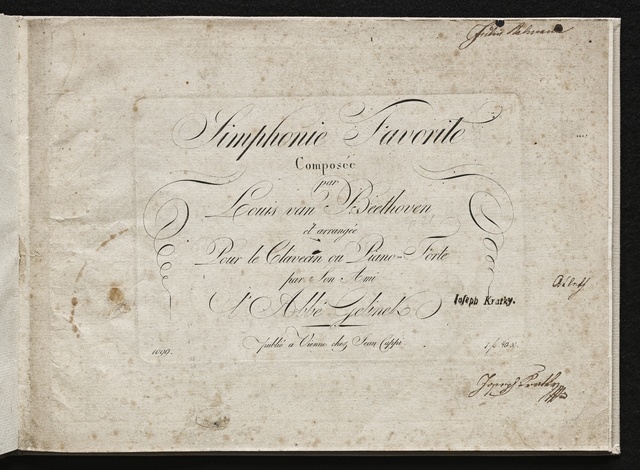 Simphonie Favorite
Composée
par
Louis van Beethoven
et arrangée
Pour le Clavecin ou Piano-Forte
par Son Ami
l'Abbé Gelinek
Joseph Kratky.
publié à Vienne chez Jean Cappi
1099.
Joseph Kratky